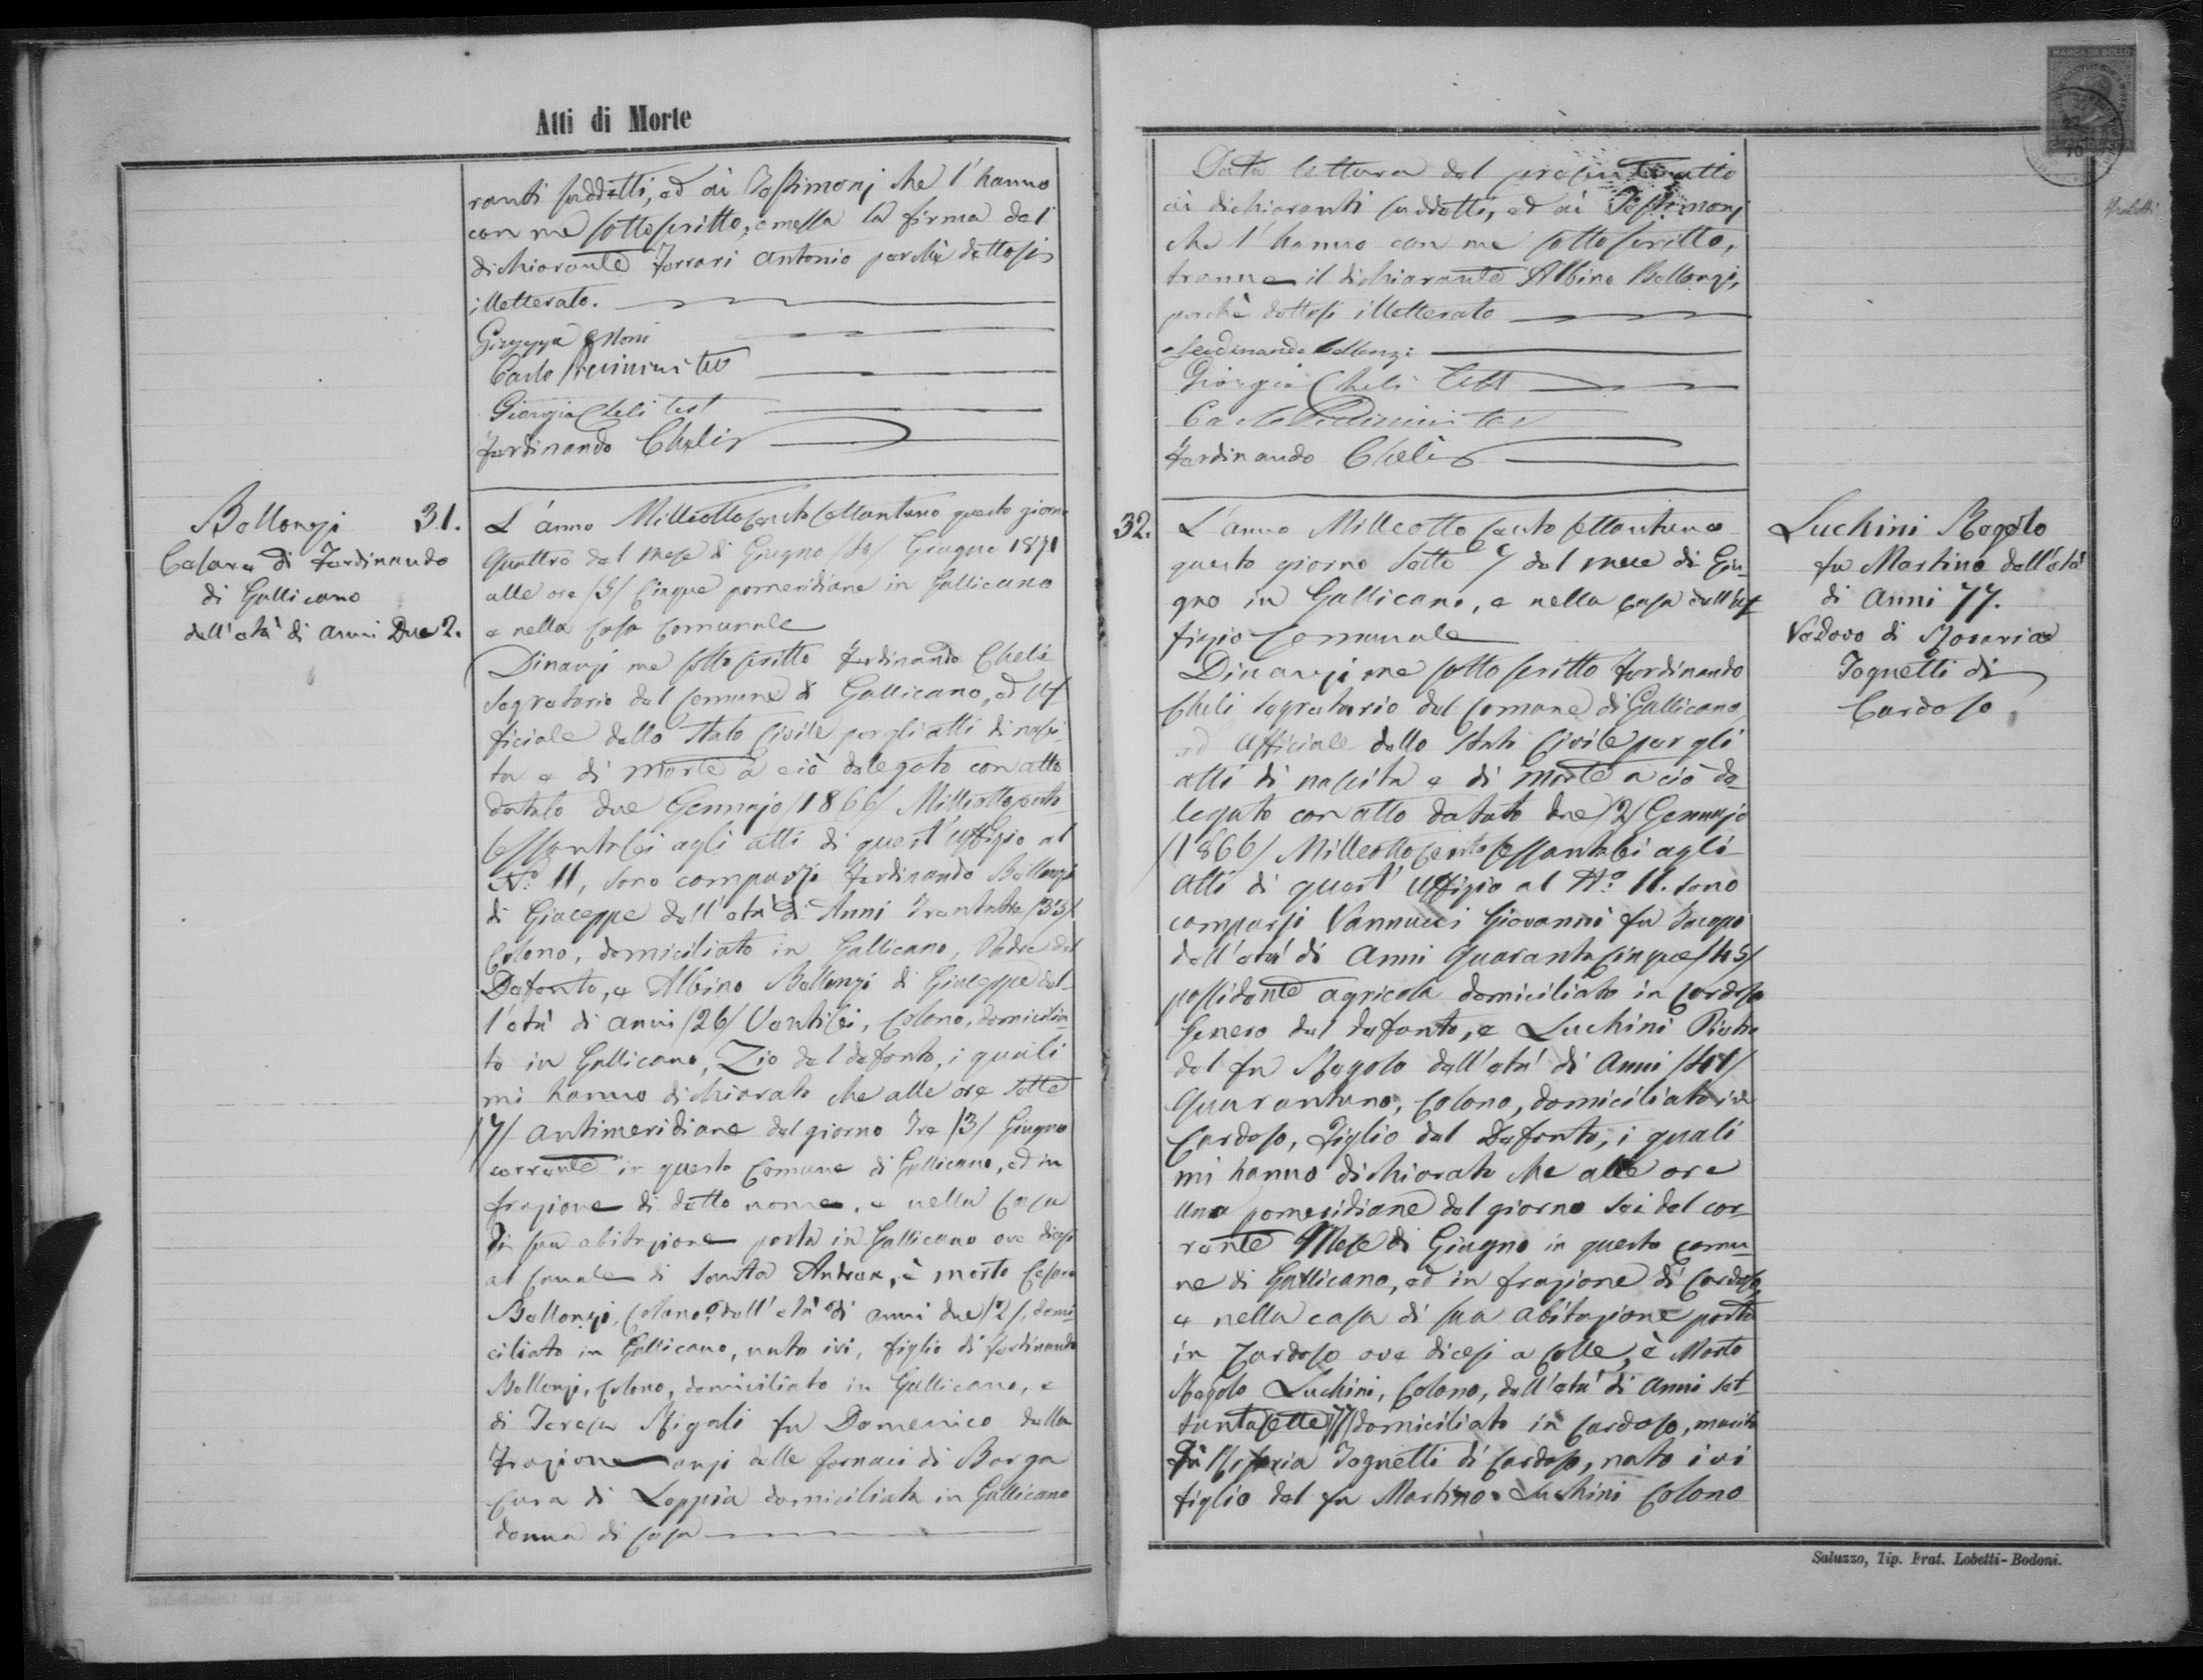 Atti di Morte
ranti suddetti, ed ai Testimonj che l'hanno
con me sottoscritto, omessa la firma del
dichiarante Ferrari Antonio perchè dettosi
illetterato.
Carlo test
Giorgio Cheli test
Ferdinando Cheli
Bollongi 31.
Cesare di Ferdinando
di Gallicano
dell'età di Anni Due 2.
L'anno Milleottocentosettantuno questo giorno
Quattro del mese di Giugno /4/ Giugno 1871
alle ore /5/ Cinque pomeridiane in Gallicano
e nella Casa Comunale
Dinanzi me sottoscritto Ferdinando Cheli
Segretario del Comune di Gallicano, ed Uf
ficiale dello Stato Civile per gli atti di nasci
ta e di morte a ciò delegato con atto
datato due Gennajo /1866/ Milleottocento
sessantasei agli atti di quest'Uffizio al
N.º 11, sono comparsi Ferdinando Bollongi
di Giuseppe dell'età di Anni Trentatre /33/
Colono, domiciliato in Gallicano, Padre del
Defonto, e Albino Bollongi di Giuseppe del
l'età di anni /26/ Ventisei, Colono, domicilia
to in Gallicano, Zio del defonto, i quali
mi hanno dichiarato che alle ore sette
/7/ antimeridiane del giorno tre /3/ Giugno
corrente in questo Comune di Gallicano, ed in
frazione di detto nome, e nella Casa
di sua abitazione posta in Gallicano ove dicesi
al Canale di Santa Andrea, è morto Cesare
Bollongi, Colono, dell'età di anni due /2/, domi
ciliato in Gallicano, nato ivi, figlio di Ferdinando
Bollongi, Colono, domiciliato in Gallicano, e
di Teresa Rigali fu Domenico dalla
Frazione anzi delle fornaci di Barga
Cura di Loppia domiciliata in Gallicano
donna di casa
Data lettura del presente atto
ai dichiaranti suddetti, ed ai Testimonj
che l'hanno con me sottoscritto,
tranne il dichiarante Albino Bollongi,
perchè dettosi illetterato
Ferdinando Bollongi
Giorgio Cheli test
Carlo test
Ferdinando Cheli
32. L'anno Milleottocentosettantuno
questo giorno Sette 7 del mese di Giu
gno in Gallicano, e nella casa dell'uf
fizio Comunale
Dinanzi me sottoscritto Ferdinando
Cheli Segretario del Comune di Gallicano,
ed Ufficiale dello Stato Civile per gli
atti di nascita e di morte a ciò de
legato con atto datato due /2/ Gennajo
/1866/ Milleottocentosessantasei agli
Atti di quest'Uffizio al N.º 11. sono
comparsi Vannucci Giovanni fu Jacopo
dell'età di Anni Quarantacinque /45/
possidente agricola domiciliato in Cardoso
Genero del defonto, e Luchini Pietro
del fu Regolo dell'età di Anni /41/
Quarantuno, Colono, domiciliato in
Cardoso, Figlio del Defonto, i quali
mi hanno dichiarato che alle ore
una pomeridiane del giorno sei del cor
rente Mese di Giugno in questo comu
ne di Gallicano, ed in frazione di Cardoso,
e nella casa di sua abitazione posta
in Cardoso ove dicesi a Colle, è Morto
Regolo Luchini, Colono, dell'età di Anni set
tantasette /77/ domiciliato in Cardoso, marito
di Rosaria Tognetti di Cardoso, nato ivi
figlio del fu Martino Luchini Colono
Luchini Regolo
fu Martino dell'età
di Anni 77.
Vedovo di Rosaria
Tognetti di
Cardoso
MARCA DA BOLLO
Saluzzo, Tip. Frat. Lobetti-Bodoni.